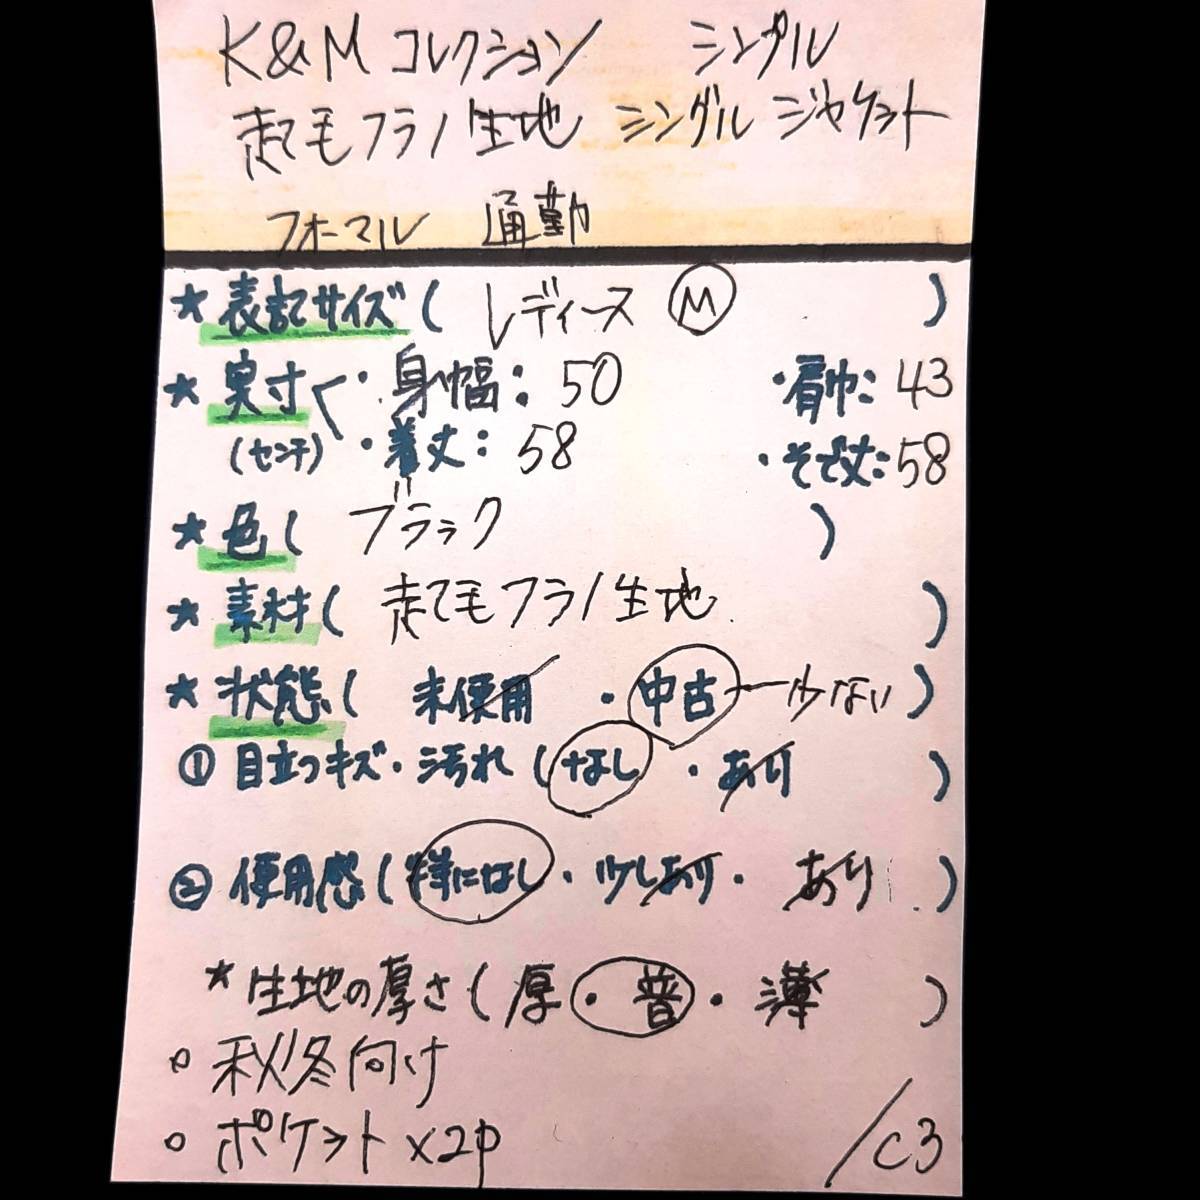 K&M コレクション シングル
起て毛フラノ生地 シングルジャケット
フォーマル 通勤
★ 表記サイズ ( レディース M )
★ 実寸 < ・身幅: 50 ・肩巾: 43
(センチ) ・着丈: 58 ・そで丈: 58
★ 色 ( ブラック )
★ 素材 ( 起て毛フラノ生地 )
★ 状態 ( 未使用 ・ 中古 ー少ない )
① 目立つキズ・汚れ ( なし ・ あり )
② 使用感 ( 特になし ・ 少しあり ・ あり )
★ 生地の厚さ ( 厚 ・ 普 ・ 薄 )
○ 秋冬向け
○ ポケット x2p
/c3